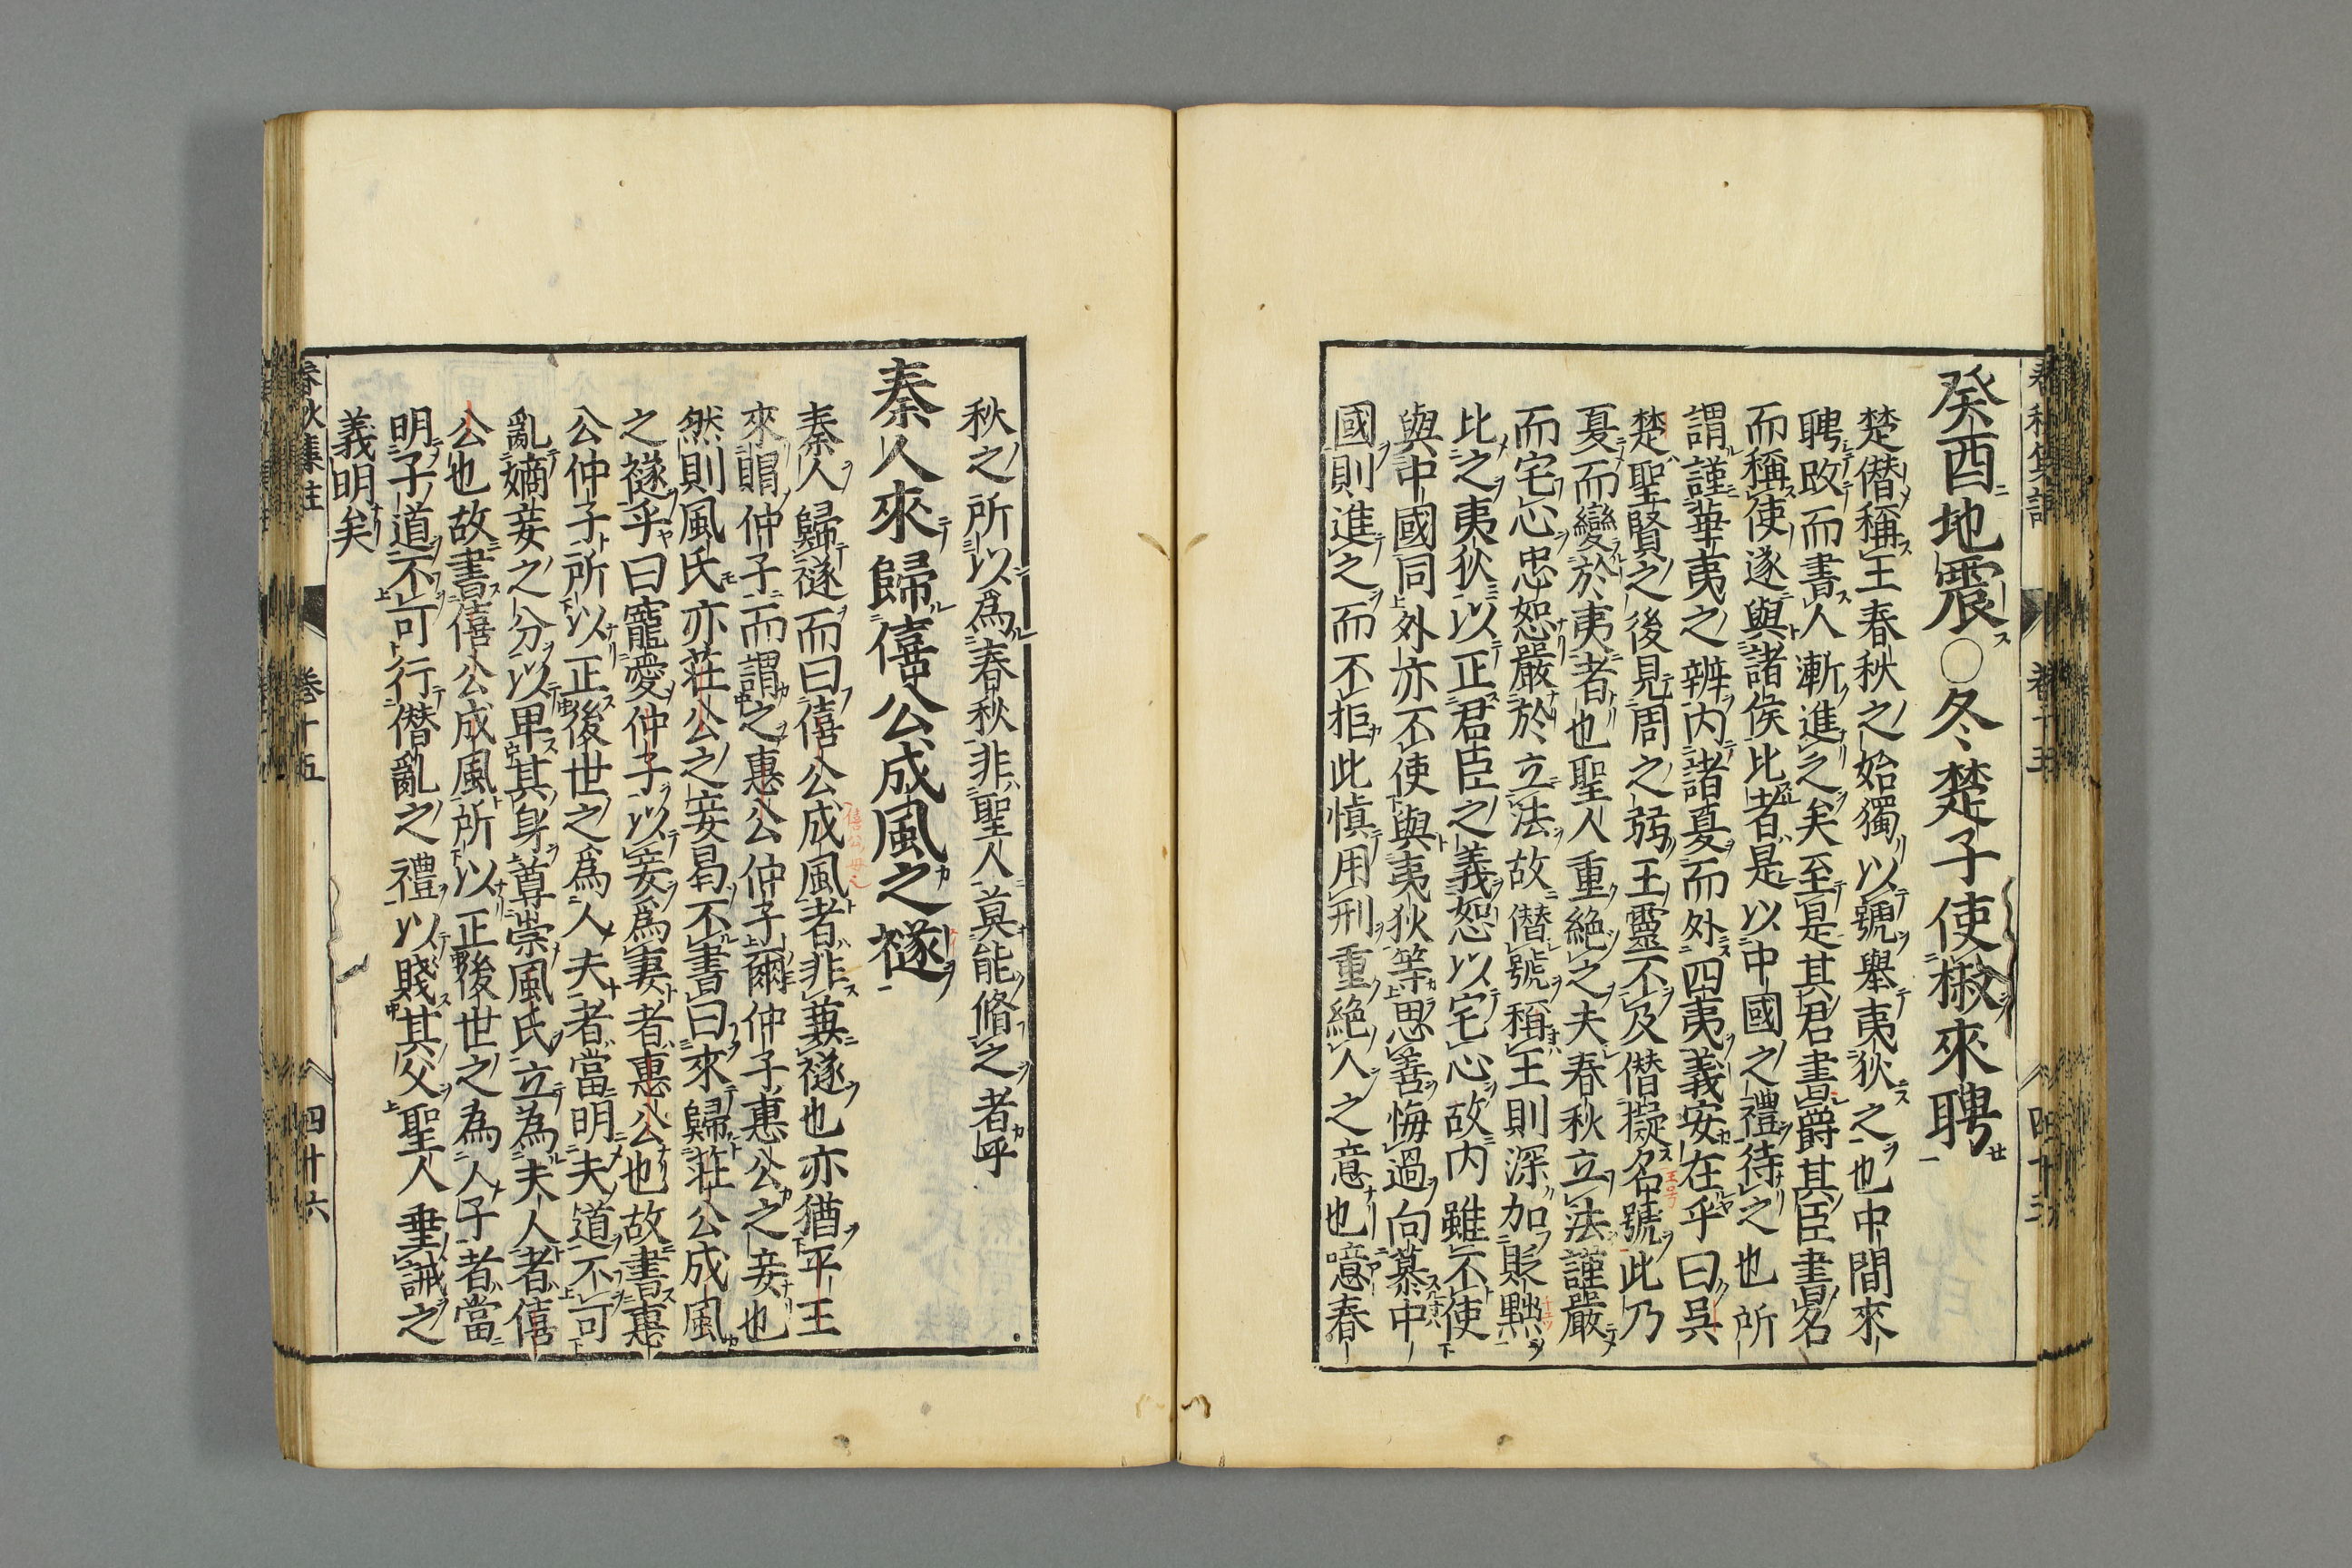 癸酉地震○冬楚子使椒來聘
楚僣稱王春秋之始獨以號舉夷狄之也中間來
聘改而書人漸進之矣至是其君書爵其臣書名
而稱使遂與諸侯比者是以中國之禮待之也所
謂謹華夷之辨内諸夏而外四夷義安在乎曰吳
楚聖賢之後見周之弱王靈不及僣擬名號此乃
夏而變於夷者也聖人重絶之夫春秋立法謹嚴
而宅心忠恕嚴於立法故僣號稱王則深加貶黜
比之夷狄以正君臣之義恕以宅心故内雖不使
與中國同外亦不使與夷狄等思善悔過向慕中
國則進之而不拒此慎用刑重絶人之意也噫春
秋之所以爲春秋非聖人莫能脩之者乎
秦人來歸僖公成風之襚
秦人歸襚而曰僖公成風者非兼襚也亦猶平王
來賵仲子而謂之惠公仲子爾仲子惠公之妾也
然則風氏亦莊公之妾曷不書曰來歸莊公成風
之襚乎曰寵愛仲子以妾爲妻者惠公也故書惠
公仲子所以正後世之爲人夫者當明夫道不可
亂嫡妾之分以卑其身尊崇風氏立為夫人者僖
公也故書僖公成風所以正後世之為人子者當
明子道不可行僣亂之禮以賤其父聖人垂誡之
義明矣
春秋集註 卷十五 四十六